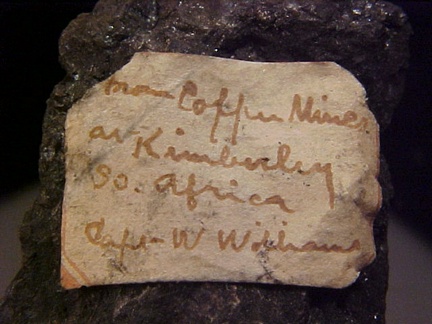 from Copper Mines
at Kimberley
So. Africa
Capn W Williams